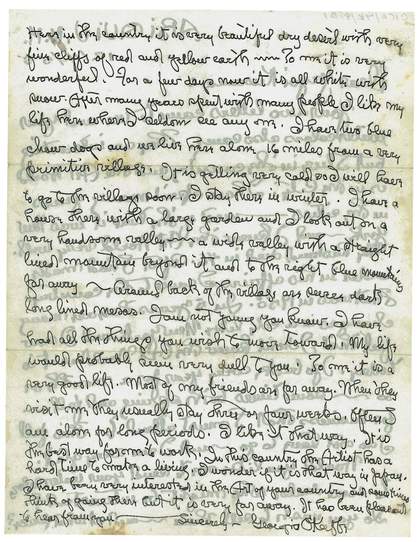 Here in the country it is very beautiful dry desert with very
fine cliffs of red and yellow earth — To me it is very
wonderful. For a few days now it is all white with
snow. After many years spent with many people I like my
life here where I seldom see any one. I have two blue
chow dogs and we live here alone 16 miles from a very
primitive village. It is getting very cold so will have
to go to the village soon. I stay there in winter. I have a
house there with a large garden and I look out on a
very handsome valley — a wide valley with a straight
lined mountain beyond it and to the right blue mountains
far away ~ Around back of the village are dark
long lined mesas. I am not young you know. I have
had all the things you wish to move toward. My life
would probably seem very dull to you. To me it is a
very good life. Most of my friends are far away. When they
visit me they usually stay three or four weeks. Often I
am alone for long periods. I like it that way. It is
the best way for me to work. In this country the Artist has a
hard time to make a living. I wonder if it is that way in Japan.
I have been very interested in the Art of your country and sometimes
think of going there but it is very far away. It has been pleasant
to hear from you
Sincerely — Georgia O'Keeffe